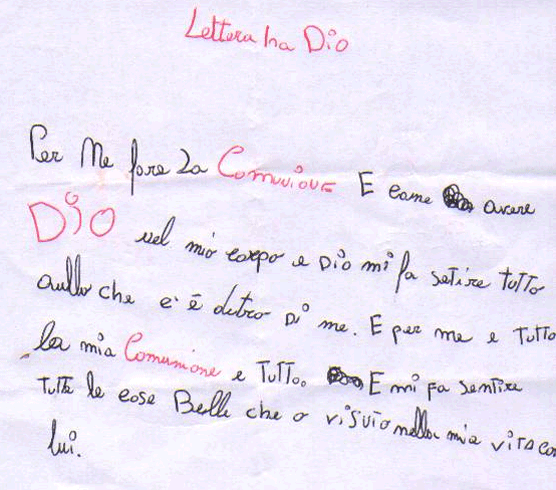 Lettera ha Dio
Per Me fare La Comunione E come avere
DIO nel mio corpo e Dio mi fa setire tutto
quello che c'è detro Di me. E per me e Tutto
la mia Comunione e Tutto. E mi fa sentire
Tutte le cose Belle che o visuto nella mia vita con
lui.